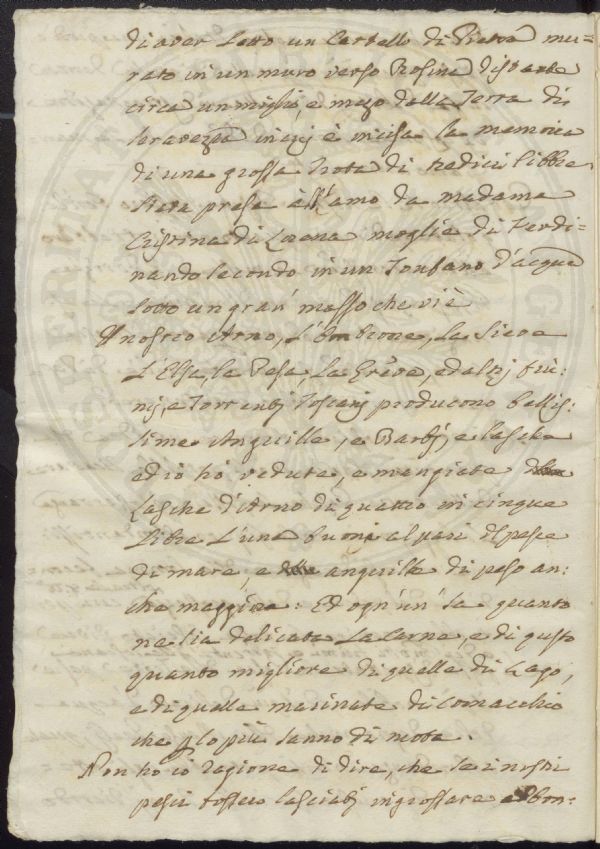 di aver letto un Cartello di Pietra mu=
rato in un muro verso Rosina distante
circa un miglio, e mezo dalla Terra di
Seravezza in cui è incisa la memoria
di una grossa Trota di tredici libbre
stata presa all'amo da madama
Cristina di Lorena moglie di Ferdi=
nando secondo in un Tonfano d'acqua
sotto un gran' masso che vi è
Il nostro Arno, L'Ombrone, La Sieve
L'Elsa, la Pesa, La Greve, ed altri fiu:
mi, e Torrenti Toscani producono bellis:
sime Anguille, e Barbi, e lasche
ed io hò vedute, e mangiate
Lasche d'Arno di quattro in cinque
Libre L'una buone al pari del pesce
di mare, e anguille di peso an:
che maggiore: Ed ogn'un' sa quanto
ne sia delicata La Carne, e di gusto
quanto migliore di quelle di Lago,
e di quelle marinate di Comacchio
che p lo più sanno di mota.
Non ho io ragione di dire, che se i nostri
pesci fossero lasciati ingrossare